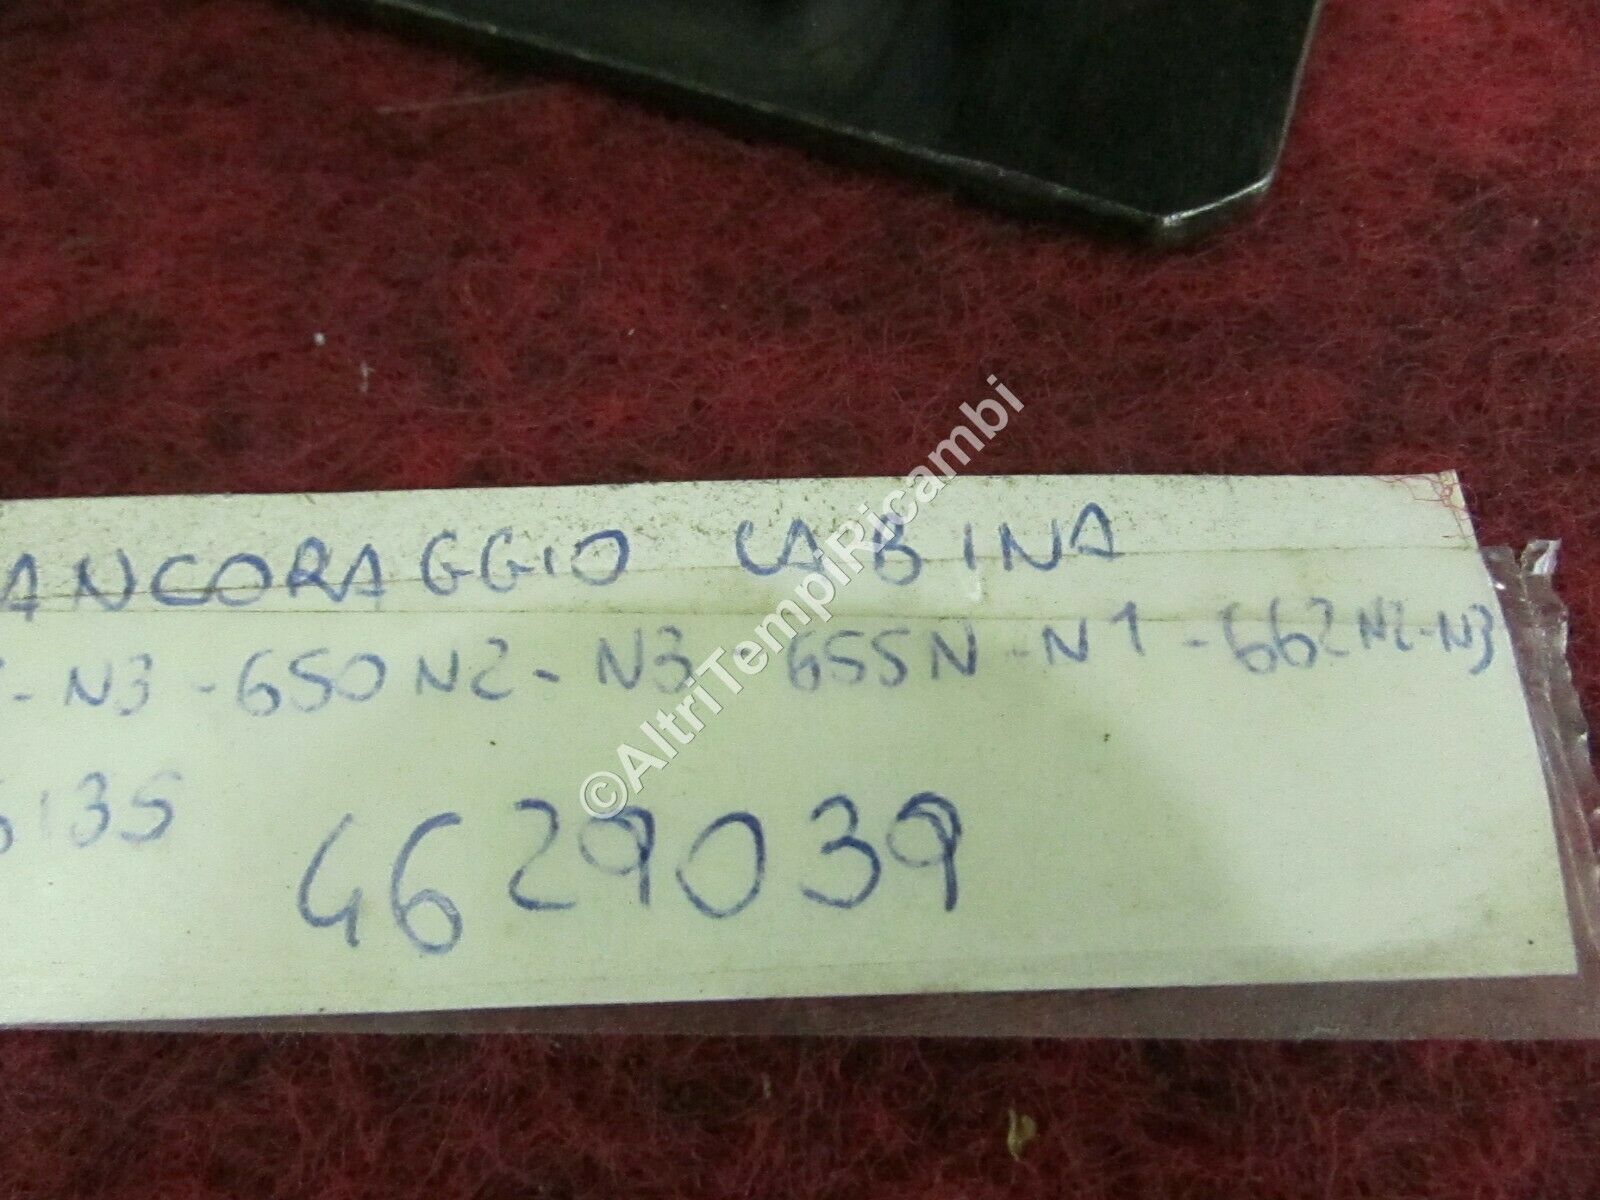 ANCORAGGIO CABINA
-N3-650N2-N3-655N-N1-662N2-N3
135
4629039
©AltriTempiRicambi